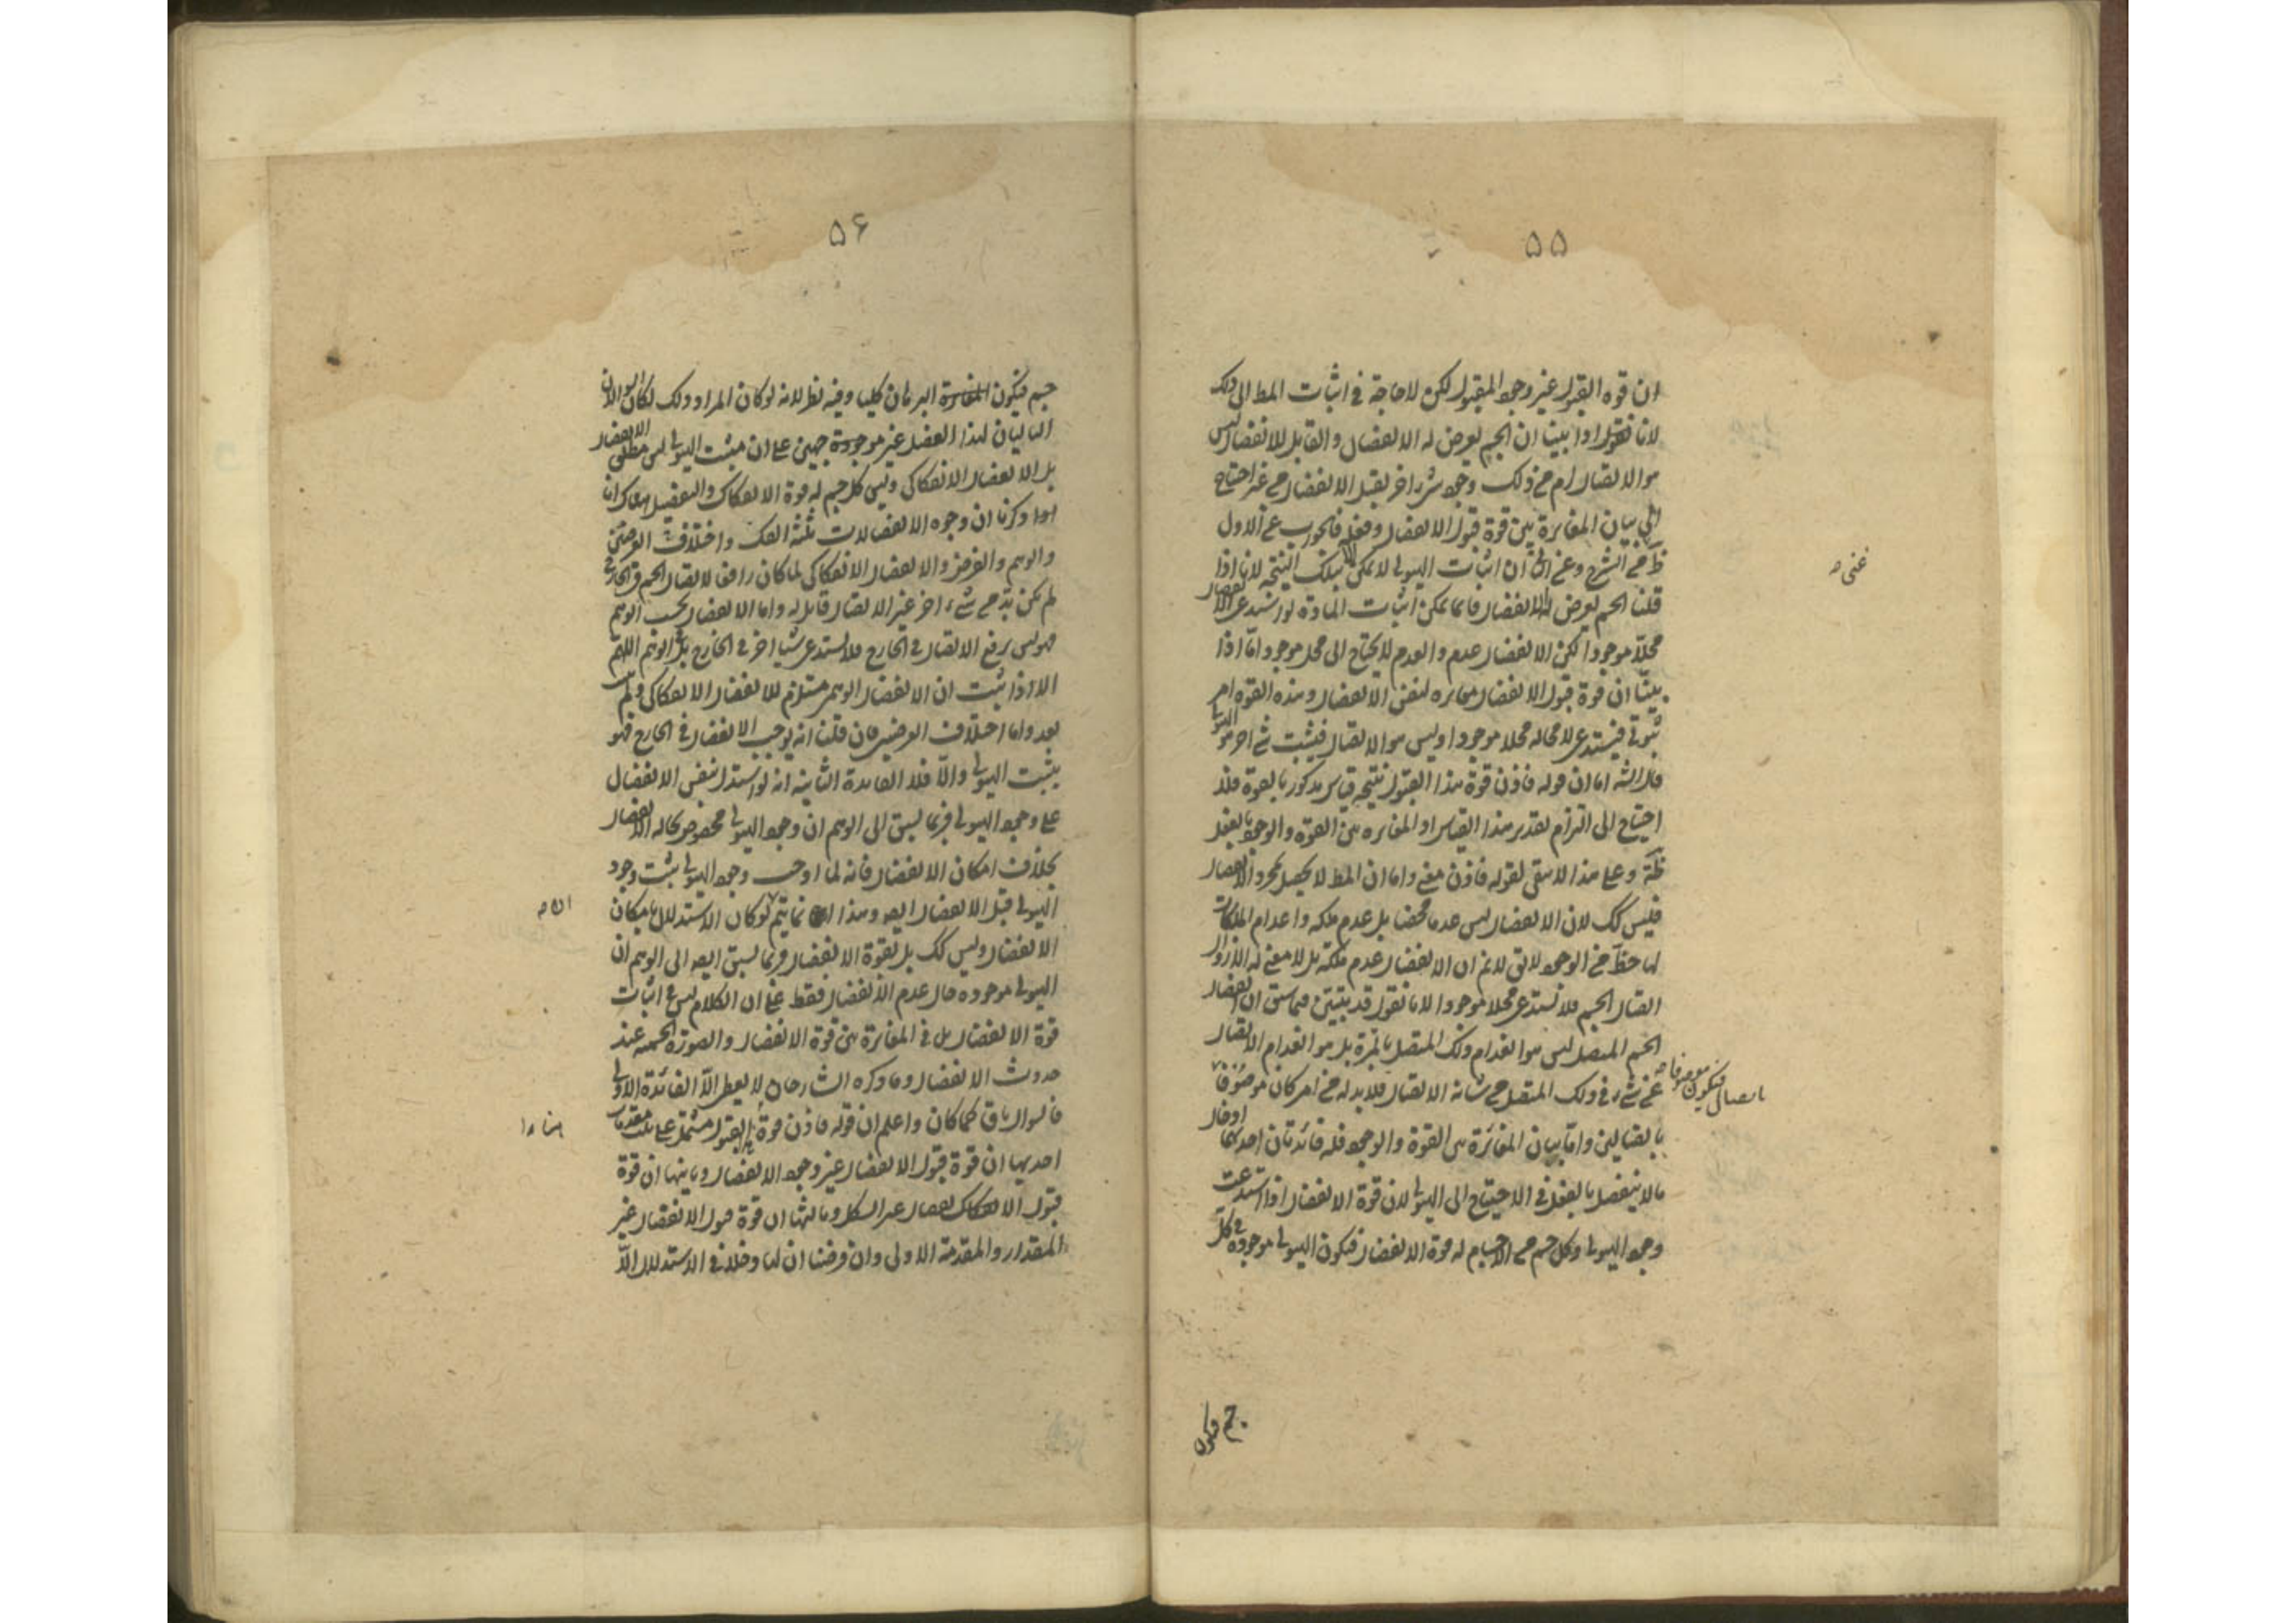 ۵۵
ان قوة القبول غير وجود المقبول لكن لا حاجة فى اثبات المط الى ذلك
لانا نقول اذا بينا ان الجسم يعرض له الانفصال والقابل للانفصال ليس
هو الاتصال لزم من ذلك وجود شىء اخر يقبل الانفصال من غير احتياج
الى بيان المغايرة بين قوة قبول الانفصال وفعله فالجواب عن الاول
ظ من الشرح وعن الثانى ان اثبات الهيولى لا يمكن الا بتلك النتيجة لانا اذا
قلنا الجسم يعرض له الانفصال فانما يمكن اثبات المادة لو استدعى الانفصال
محلا موجودا لكن الانفصال عدم والعدم لا يحتاج الى محل موجود اما اذا
بينا ان قوة قبول الانفصال مغايره لنفس الانفصال وهذه القوة امر
ثبوتى فيستدعى لا محاله محلا موجودا وليس هو الاتصال فيثبت شىء اخر هو الهيولى
قال الشه اما ان قوله فاذن قوة هذا القبول نتيجه قياس مذكور بالقوة فلا
احتياج الى التزام تقدير هذا القياس او المغايره بين القوة والوجود بالفعل
وعلى هذا لا يبقى لقوله فاذن معنى واما ان المط لا يحصل بمجرد الانفصال
فليس كك لان الانفصال ليس عدما محضا بل عدم ملكه واعدام الملكات
لها حظ من الوجود لا يق لانم ان الانفصال عدم ملكة بل لا معنى له الا زوال
اتصال الجسم فلا يستدعى محلا موجودا لانا نقول قد تبين فيما سبق ان انفصال
الجسم المتصل ليس هو انعدام ذلك المتصل بالمرة بل هو انعدام الاتصال
عن شىء فى ذلك المتصل من شانه الاتصال فلا بد له من امر كان موصوفا
باتصال فيكون موصوفا
بالقياس واما بيان المغايرة بين القوة والوجود فله فائدتان احديهما ادخال
ما لا ينفصل بالفعل فى الاحتياج الى الهيولى لان قوة الانفصال اذا استدعت
وجود الهيولى وكل جسم من الاجسام له قوة الانفصال فيكون الهيولى موجودة فى كل
جسم فيكون
۵۶
جسم فيكون البرهان كليا وفيه نظر لانه لو كان المراد ذلك لكان
التاليان لهذا الفصل غير موجهين على ان مثبت الهيولى ليس مطلق الانفصال
بل الانفصال الانفكاكى وليس كل جسم له قوة الانفكاك والتفصيل هناك انا
اذا ذكرنا ان وجوه الانفصالات ثلثة الفك واختلاف العرضين
والوهم والفرض والانفصال الانفكاكى لما كان رافعا لاتصال الجسم فى الخارج
لم يكن بد من شىء اخر غير الاتصال قابل له واما الانفصال بحسب الوهم
فهو ليس يرفع الاتصال فى الخارج فلا يستدعى شيا اخر فى الخارج بل فى الوهم اللهم
الا اذا ثبت ان الانفصال الوهمى مستلزم للانفصال الانفكاكى ولم يثبت
بعد واما اختلاف العرضين فان قلنا انه يوجب الانفصال فى الخارج فهو
يثبت الهيولى والا فلا الفايدة الثانية انه لو استدل بنفس الانفصال
على وجود الهيولى فربما يسبق الى الوهم ان وجود الهيولى مخصوص بحالة الانفصال
بخلاف امكان الانفصال فانه لما اوجب وجود الهيولى ثبت وجود
الهيولى قبل الانفصال ايضا وهذا انما يتم لو كان الاستدلال بامكان
الانفصال وليس كك بل بقوة الانفصال فربما يسبق ايضا الى الوهم ان
الهيولى موجوده حال عدم الانفصال فقط على ان الكلام ليس فى اثبات
قوة الانفصال بل فى المغايرة بين قوة الانفصال والصورة الجسميه عند
حدوث الانفصال وما ذكره الشارحان لا يعطى الا الفائدة الاولى
فالسؤال باق كما كان واعلم ان قوله فاذن قوة هذا القبول مشتمل على ثلث مقدمات
احديها ان قوة قبول الانفصال غير وجود الانفصال وثانيتها ان قوة
قبول الانفصال غير الشكل وثالثها ان قوة قبول الانفصال غير
المقدار والمقدمة الاولى وان فرضنا ان لها دخلا فى الاستدلال الا